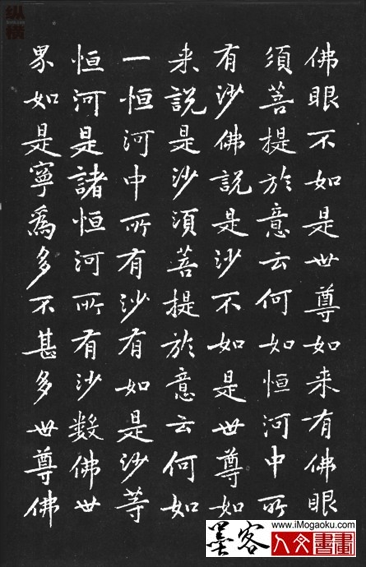 佛眼不如是世尊如来有佛眼
須菩提於意云何如恒河中所
有沙佛說是沙不如是世尊如
来說是沙須菩提於意云何如
一恒河中所有沙有如是沙等
恒河是諸恒河所有沙數佛世
界如是寧爲多不甚多世尊佛
纵横
墨客
www.iMogaoku.com
人文書畫